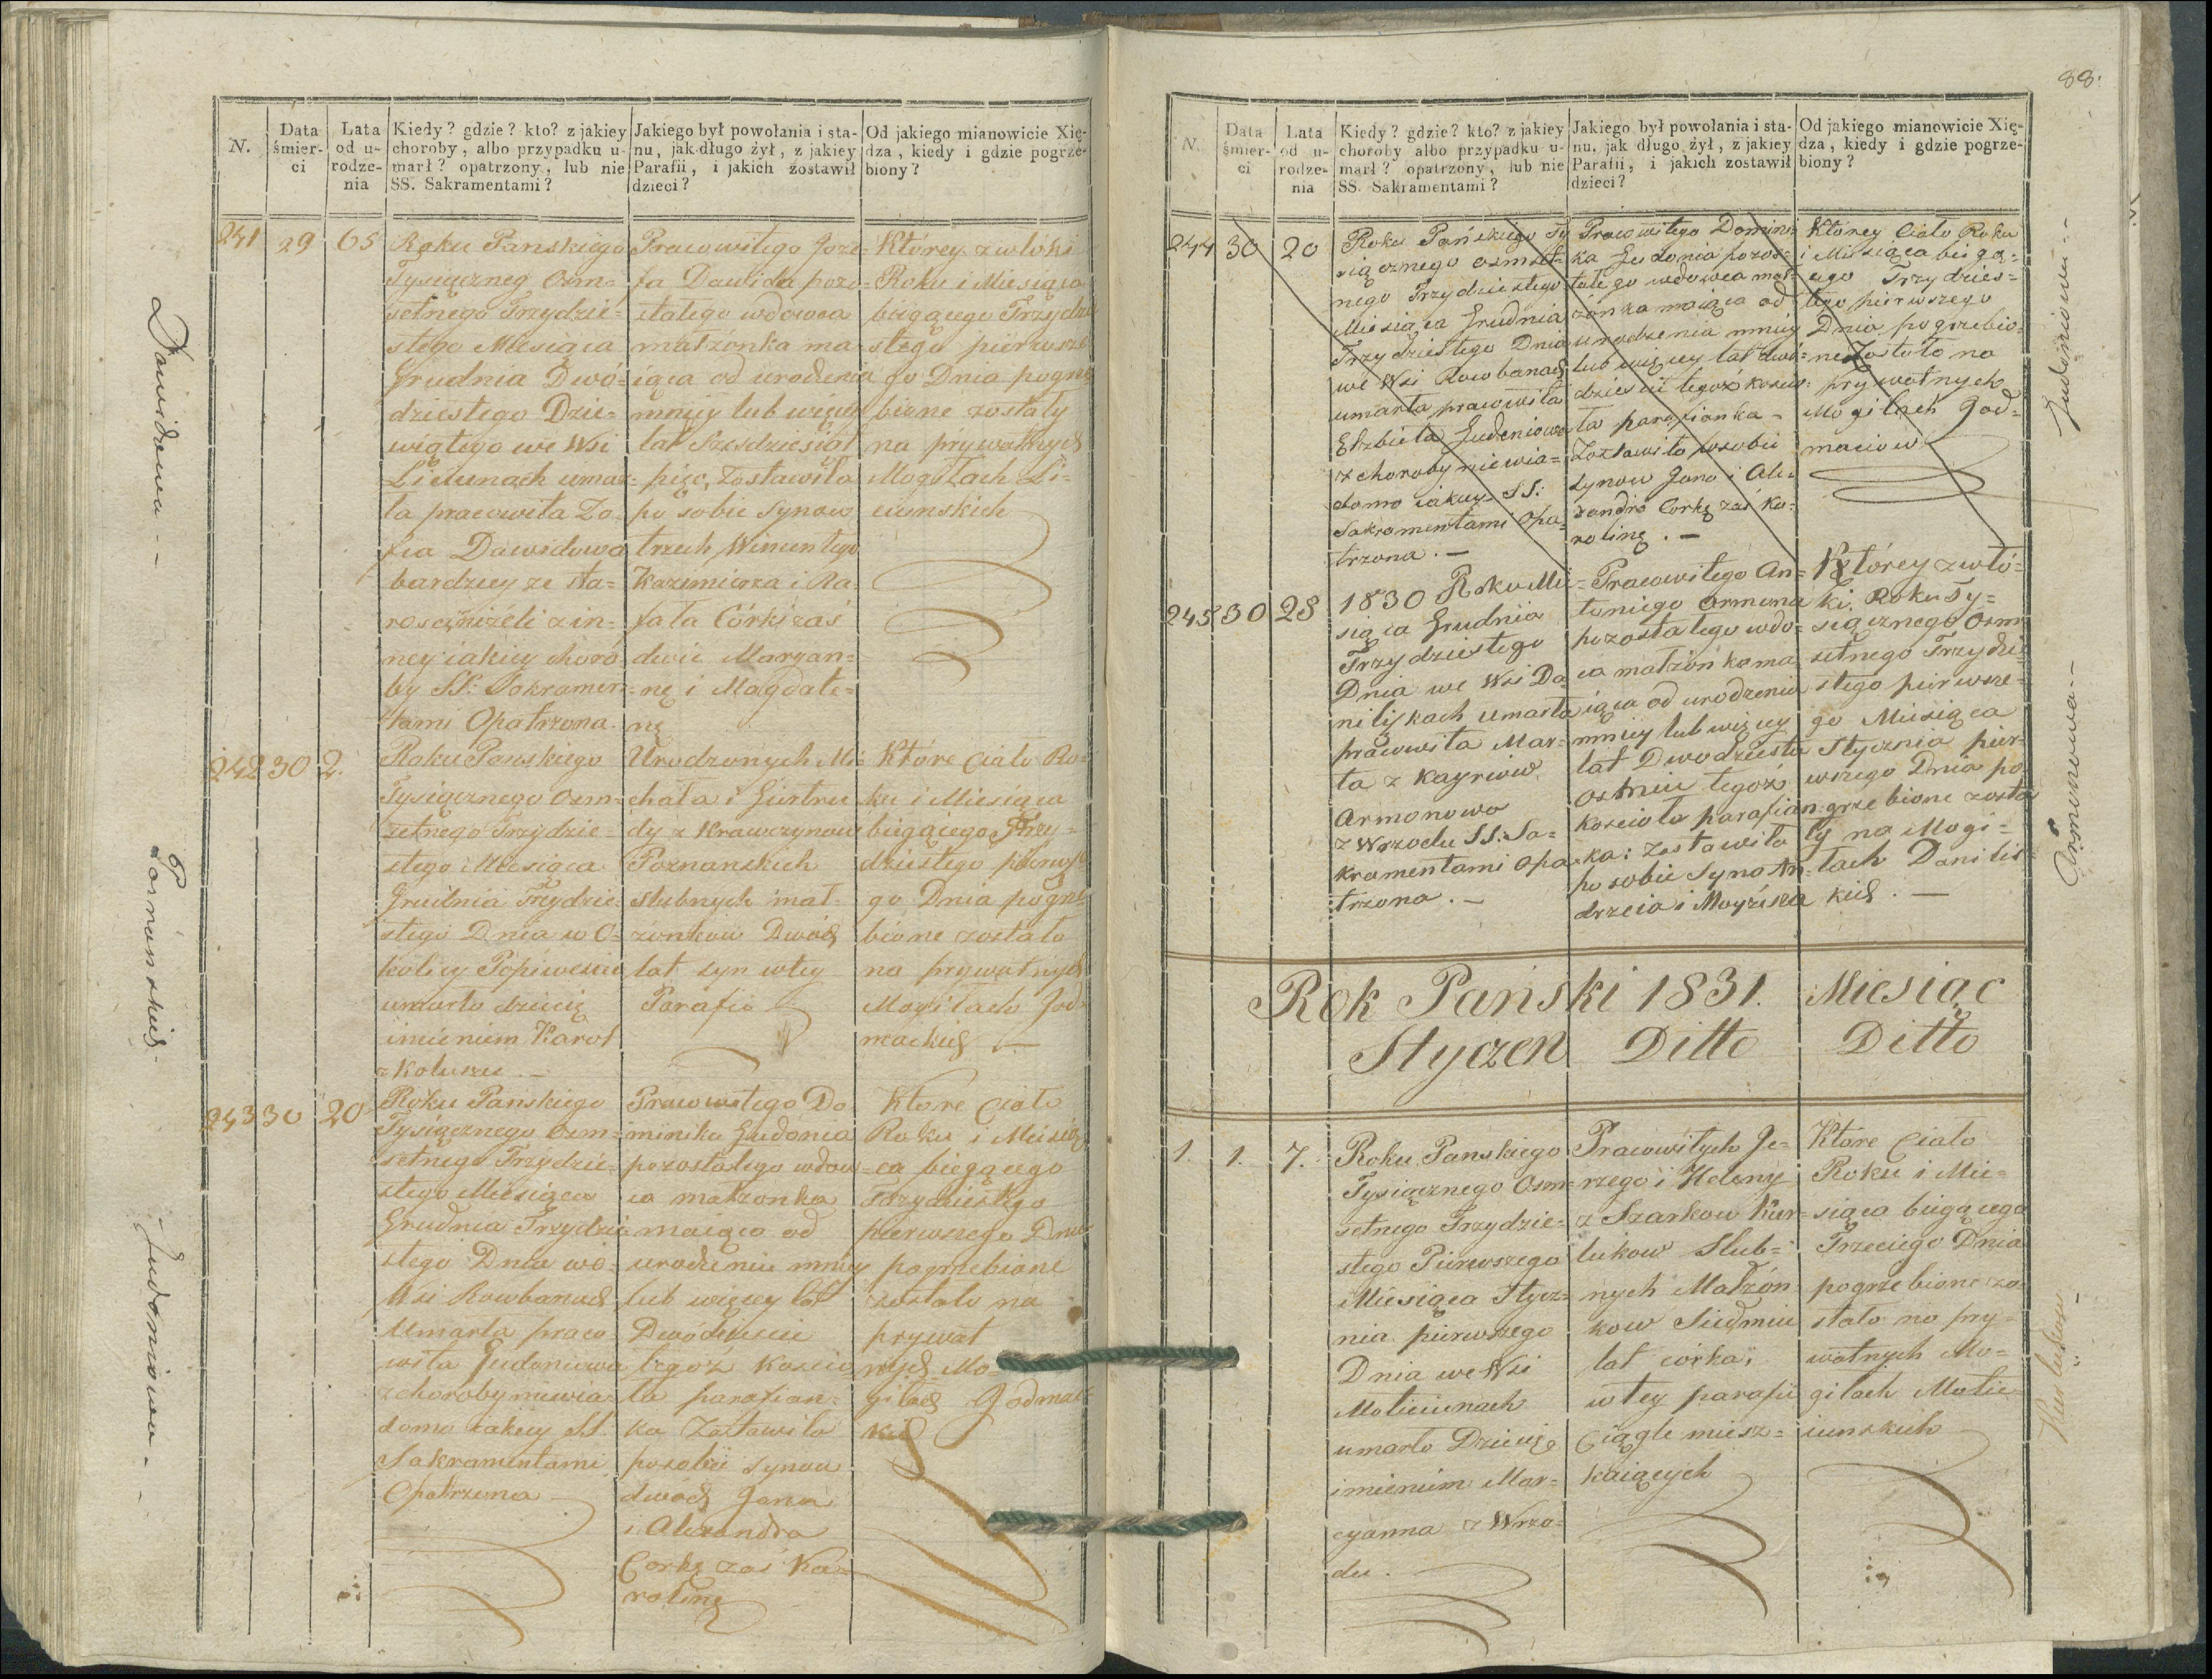 N.
Data śmier-ci
Lata od u-rodze-nia
Kiedy? gdzie? kto? z jakiey
choroby, albo przypadku u-
marł? opatrzony, lub nie
SS. Sakramentami?
Jakiego był powołania i sta-
nu, jak długo żył, z jakiey
Parafii, i jakich zostawił
dzieci?
Od jakiego mianowicie Xię-
dza, kiedy i gdzie pogrze-
biony?
Dawidowa
241
29
65
Roku Panskiego
Tysięczneg Osm-
setnego Trzydzie-
stego Miesiąca
Grudnia Dwó-
dziestego Dzie-
wiątego we Wsi
umar-
ła pracowita Zo-
fia Dawidowa
bardziey ze sta-
rosci niżeli z in-
ney iakiey choro-
by SS: Sakramen-
tami Opatrzona.
Pracowitego Joze-
fa Dawida pozo-
stałego wdowca
małżonka ma-
iąca od urodzenia
mniey lub więcey
lat Szesdziesiąt
pięc, Zostawiła
po sobie Synow
trzech Wincentego
Kazimierza i Ra-
fała Córki zaś
dwie Maryan-
nę i Magdale-
nę
Którey zwłoki
Roku i Miesiąca
biegącego Trzydzie
stego pierwsze
go Dnia pogrze
bione zostały
na prywatnych
Mogiłach Li-
ciunskich
Poznanskich
242
30
2.
Roku Panskiego
Tysiącznego Osm-
setnego Trzydzie-
stego Miesiąca
Grudnia Trzydzie-
stego Dnia w O-
kolicy
umarło dziecię
imieniem Karol
z Koluszu.
Urodzonych Mi-
chała i Giertru
dy z Krawczynow
Poznanskich
slubnych mał-
żonkow Dwóch
lat syn w tey
Parafii
Ktore Ciało Ro-
ku i Miesiąca
biegącego Trzy-
dziestego pierwsze
go Dnia pogrze
bione zostało
na prywatnych
Mogiłach God-
mackich
Gudoniowa
243
30
20
Roku Panskiego
Tysiącznego Osm-
setnego Trzydzie-
stego Miesiąca
Grudnia Trzydzie
stego Dnia we
Wsi Rowbanach
Umarła praco
wita Gudoniowa
z choroby niewia-
domo iakiey SS.
Sakramentami
Opatrzona
Pracowitego Do
minika Gudonia
pozostałego wdow-
ca małzonka
maiąca od
urodzenia mniey
lub więcey lat
Dwódziescie
tegoż Koscio
ła parafian-
ka Zostawiła
po sobie synow
dwoch Jana
i Alexandra
Corkę zaś Ka-
rolinę
Ktore Ciało
Roku i Miesią
ca biegącego
Trzydziestego
pierwszego Dnia
pogrzebione
zostało na
prywat
nych Mo-
giłach Godmac
kich
88.
N.
Data śmier-ci
Lata od u-rodze-nia
Kiedy? gdzie? kto? z jakiey
choroby albo przypadku u-
marł? opatrzony, lub nie
SS. Sakramentami?
Jakiego był powołania i sta-
nu, jak długo żył, z jakiey
Parafii, i jakich zostawił
dzieci?
Od jakiego mianowicie Xię-
dza, kiedy i gdzie pogrze-
biony?
244
30
20
Roku Pańskiego Ty
siącznego osmset-
nego Trzydziestego
Miesiąca Grudnia
Trzydziestego Dnia
we Wsi Rowbanach
umarła pracowita
Elzbieta Gudoniowa
z choroby niewia-
domo iakiey SS:
Sakramentami Opa-
trzona.
Pracowitego Domini
ka Gudonia pozos-
tałego wdowca mał-
żonka maiąca od
urodzenia mniey
lub więcey lat dwó-
dziescie tegoż koscio-
ła parafianka
Zostawiła po sobie
synow Jana i Ale-
xandra Corkę zaś Ka-
rolinę.
Którey Ciało Roku
i Miesiąca biegą-
cego Trzydzies-
tego pierwszego
Dnia pogrzebio-
ne Zostało na
prywatnych
Mogiłach God-
maciow
Gudoniowa
245
30
28
1830 Roku Mie-
siąca Grudnia
Trzydziestego
Dnia we Wsi Da-
niliszkach umarła
pracowita Mar-
ta z Kayriow
Armonowa
z Wrzodu SS: Sa-
kramentami opa-
trzona.
Pracowitego An-
toniego Armona
pozostałego wdo-
ca małżonka ma-
iąca od urodzenia
mniey lub więcey
lat Dwodziescia
Osmiu tegoż
koscioła parafian-
ka: zostawiła
po sobie Syna An-
drzeia i Moyżesza
Którey zwło-
ki Roku Ty-
siącznego Osm
setnego Trzydzie-
stego pierwsze-
go Miesiąca
Stycznia pier-
wszego Dnia po-
grzebione zosta
ły na Mogi-
łach Danilis-
kich.
Armonowa
Rok Pański 1831. Miesiąc
Styczen Ditto Ditto
1.
1.
7.
Roku Panskiego
Tysiącznego Osm-
setnego Trzydzie-
stego Pierwszego
Miesiąca Stycz-
nia pierwszego
Dnia we Wsi
Moliciunach
umarło Dziecię
imieniem Mar-
cyanna z Wrzo-
du.
Pracowitych Je-
rzego i Heleny
z Szarkow Kur-
lukow Slub-
nych Małżon
kow Siedmiu
lat córka,
w tey parafii
Ciągle miesz-
kaiących
Które Ciało
Roku i Mie-
siąca biegącego
Trzeciego Dnia
pogrzebione zo-
stało na pry-
watnych Mo-
giłach Molic
iunskich